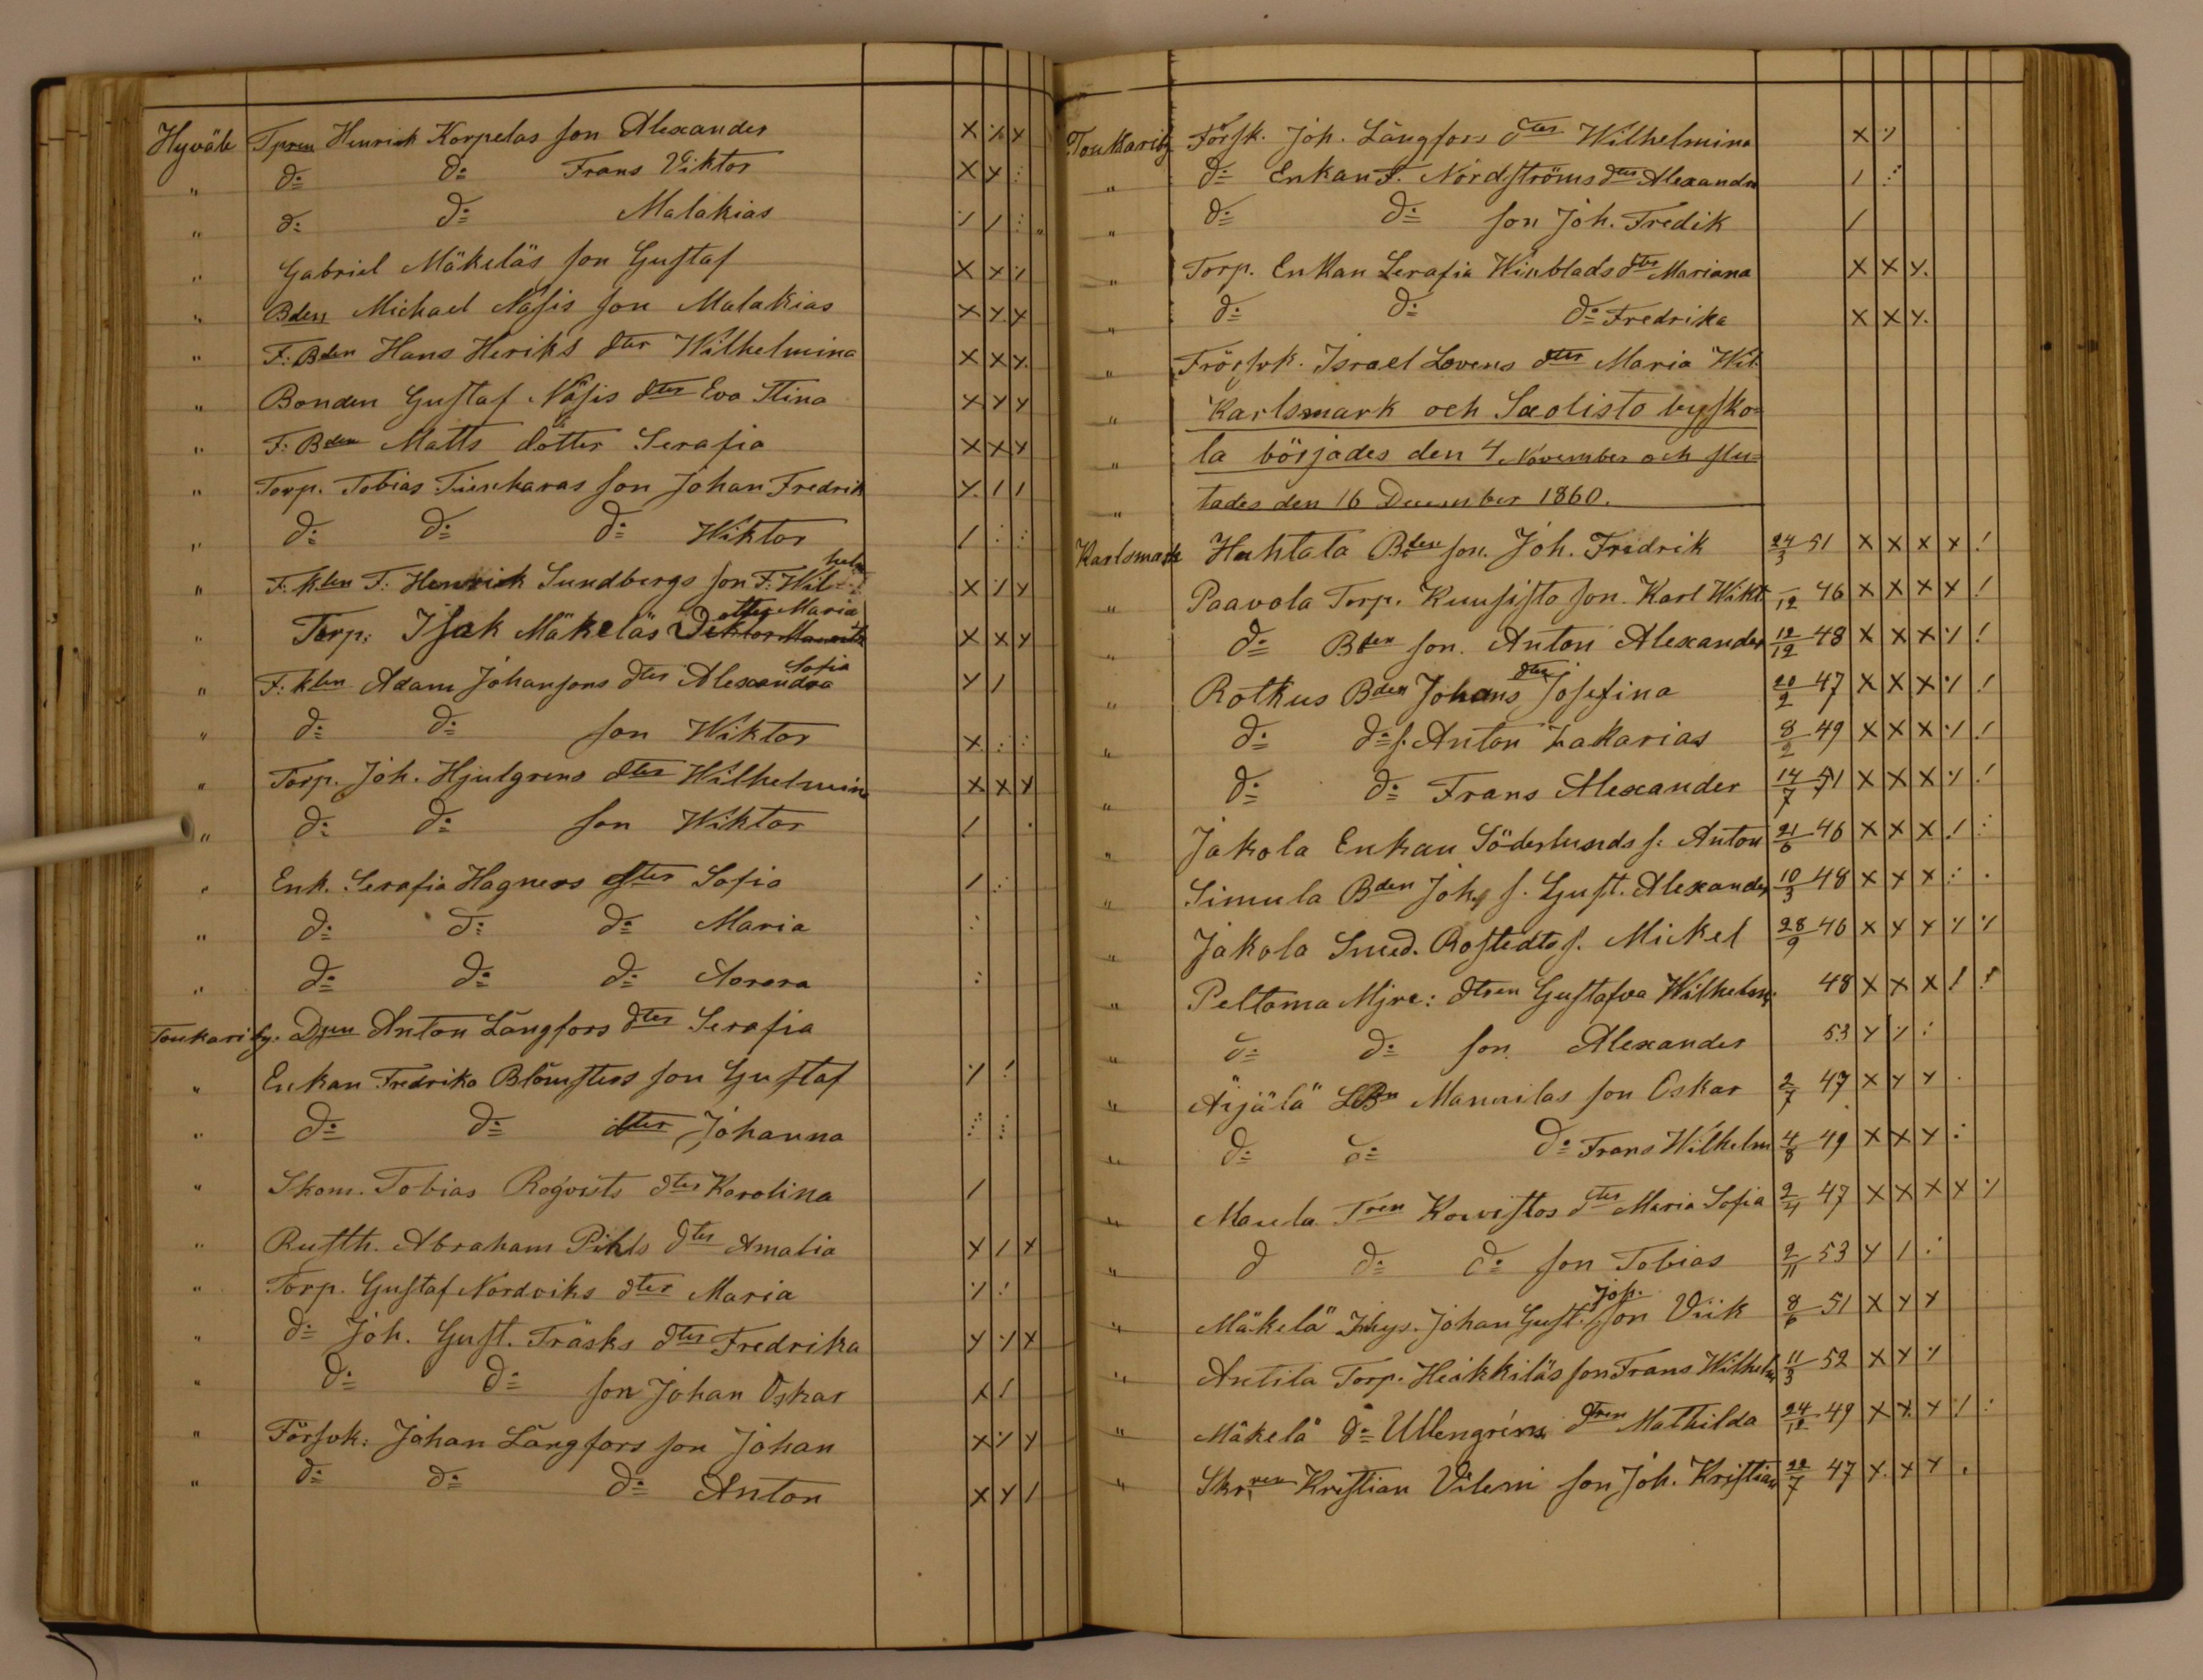 Hyvälä Tpren Henrich Korpelas son Alexander × ·/· ×
„ d:o d:o Frans Viktor × × ⋮
„ d:o d:o Malakias ·/ / ⋮ „
„ Gabriel Mäkeläs son Gustaf × × ·/
„ Bden Michael Näsis son Malakias × × ×
„ F: Bden Hans Heriks dter Wilhelmina × × ×
„ Bonden Gustaf Näsis dter Eva Stina × × ×
„ F: Bden Matts dotter Serafia × × ×
„ Torp. Tobias Tienharas son Johan Fredrik × / /
„ d:o d:o d:o Wiktor / : :
„ F: kten F: Henrik Sundbergs son F: Wilhelm × ·/ ×
„ Torp: Isak Mäkeläs Dotter Maria × × ×
„ F: kten Adam Johansons dter Alexandra Sofia × /
„ d:o d:o son Wiktor × : :
„ Torp. Joh. Hjulgrens dter Wilhelmin × × ×
„ d:o d:o son Wiktor / ·
„ Enk. Serafia Hagners dter Sofia / ⋮
„ d:o d:o d:o Maria :
„ d:o d:o d:o Aurora :
Toukari by. Djen Anton Långfors dter Serafia
„ Enkan Fredrika Blomsters son Gustaf ·/ !
„ d:o d:o dter Johanna ⋮ ⋮
„ Skom. Tobias Roqvists dter Karolina /
„ Rustth. Abraham Pihls dter Amalia × / ×
„ Torp. Gustaf Nordviks dter Maria ·/ !
„ d:o Joh. Gust. Träsks dter Fredrika × ·/ ×
„ d:o d:o son Johan Oskar × /
„ Försvk: Johan Långfors son Johan × ·/ ×
„ d:o d:o d:o Anton × × /
Toukariby Försk. Joh. Långfors dter Wilhelmina × ·/
„ d:o Enkan F. Nordströms dter Alexandra / ⋮
„ d:o d:o son Joh. Fredik /
„ Torp. Enkan Serafia Winblads dter Mariana × × ×
„ d:o d:o d:o Fredrika × × ×
„ Frörsvk. Israel Lovens dter Maria Wil.
„ Karlsmark och Saolisto bysko=
„ la börjades den 4 November och slu=
„ tades den 16 December 1860.
Karlsmark Huhtala Bden son. Joh. Fredrik 24/3 51 × × × × !
„ Paavola Torp. Kuusisto son. Karl Wikt. /12 46 × × × × !
„ d:o Bden son. Anton Alexander 12/12 48 × × × ·/ !
„ Rotkus Bden Johans dter Josefina 20/2 47 × × × ·/ !
„ d:o d:o s. Anton Zakarias 8/2 49 × × × ·/ !
„ d:o d:o Frans Alexander 14/7 51 × × × ·/ !
„ Jakola Enkan Söderlunds s: Anton 21/6 46 × × × ! :
„ Simula Bden Johs s. Gust. Alexander 10/3 48 × × × : ·
„ Jakola Smed. Rostedts s. Mickel 28/9 46 × × × ·/ ·/
„ Peltoma Mjre: dtren Gustafva Wilhelm: 48 × × × ! !
„ d:o d:o son Alexander 53 × ·/ :
„ Äijälä LBn Mannilas son Oskar 2/7 47 × × × ·
„ d:o d:o d:o Frans Wilhelm 4/8 49 × × × :
„ Maula Tren Kowistos dter Maria Sofia 2/4 47 × × × × ·/
„ d d:o d:o son Tobias 2/11 53 × / :
„ Mäkelä Inhys. Johan Gust. son Joh. Viik 8/6 51 × × ×
„ Antila Torp. Heikkiläs son Frans Wilhelm 11/3 52 × × ·/
„ Mäkelä d:o Ullengréns dtren Mathilda 24/12 49 × × × ·/ :
„ Skr:ren Kristian Vilemi son Joh. Kristian 22/7 47 × × × ·